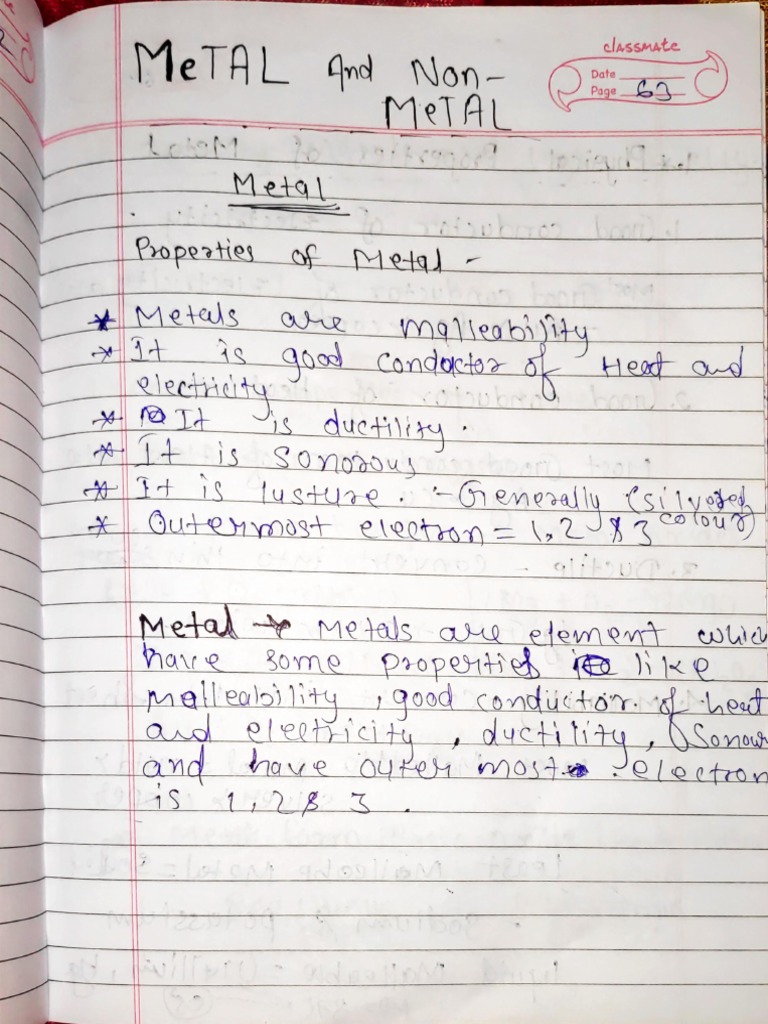 METAL And Non-
METAL
classmate
Date
Page 63
Metal
Properties of Metal -
* Metals are malleability
* It is good conductor of Heat and
electricity
* It is ductility.
* It is Sonorous
* It is lusture :- Generally (silvered
colour)
* Outermost electron = 1, 2 & 3
Metal → Metals are element which
have some properties like
malleability good conductor of heat
and electricity, ductility, Sonour
and have outer most electron
is 1, 2 & 3.